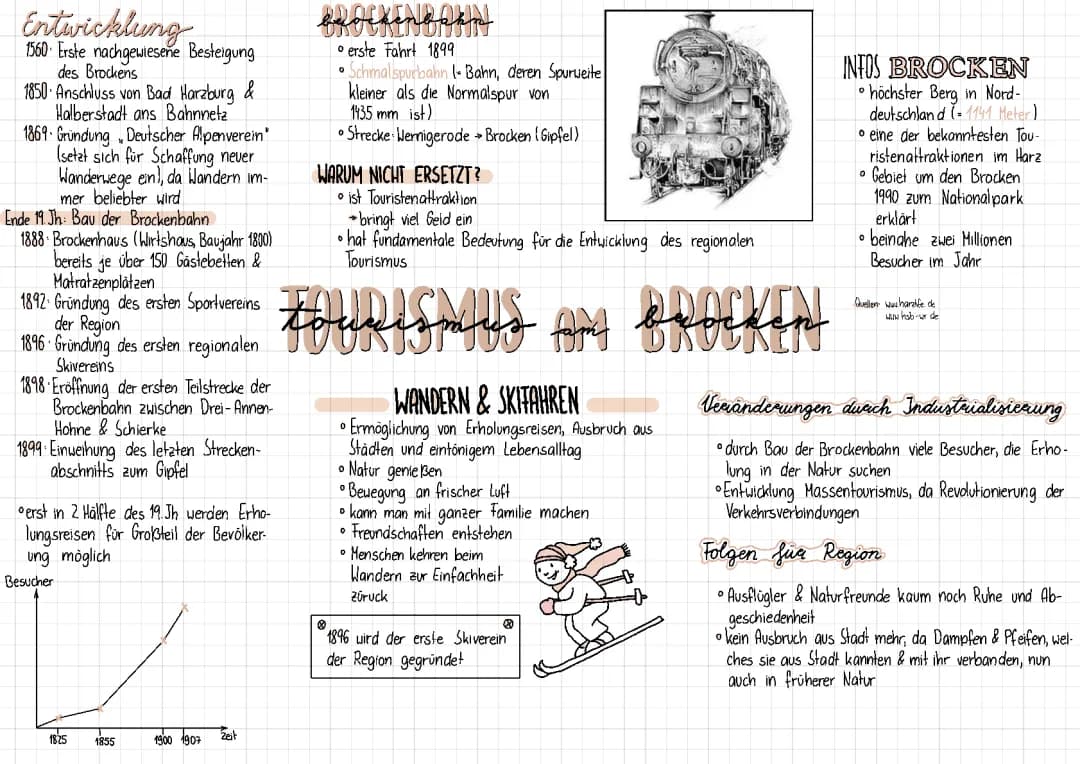 Entwicklung
1560· Erste nachgewiesene Besteigung
des Brockens
1850· Anschluss von Bad Harzburg &
Halberstadt ans Bahnnetz
1869· Gründung „Deutscher Alpenverein"
(setzt sich für Schaffung neuer
Wanderwege ein), da Wandern im-
mer beliebter wird
Ende 19. Jh: Bau der Brockenbahn
1888· Brockenhaus (Wirtshaus, Baujahr 1800)
bereits je über 150 Gästebetten &
Matratzenplätzen
1892· Gründung des ersten Sportvereins
der Region
1896· Gründung des ersten regionalen
Skivereins
1898· Eröffnung der ersten Teilstrecke der
Brockenbahn zwischen Drei-Annen-
Hohne & Schierke
1899· Einweihung des letzten Strecken-
abschnitts zum Gipfel
° erst in 2 Hälfte des 19. Jh werden Erho-
lungsreisen für Großteil der Bevölker-
ung möglich
Besucher
1825 1855 1900 1907 Zeit
BROCKENBAHN
brockenbahn
° erste Fahrt 1899
° Schmalspurbahn (= Bahn, deren Spurweite
kleiner als die Normalspur von
1435 mm ist)
° Strecke: Wernigerode → Brocken (Gipfel)
WARUM NICHT ERSETZT?
° ist Touristenattraktion
→ bringt viel Geld ein
° hat fundamentale Bedeutung für die Entwicklung des regionalen
Tourismus
INFOS BROCKEN
° höchster Berg in Nord-
deutschland (= 1141 Meter)
° eine der bekanntesten Tou-
ristenattraktionen im Harz
° Gebiet um den Brocken
1990 zum Nationalpark
erklärt
° beinahe zwei Millionen
Besucher im Jahr
Quellen: www.harzlife.de
www.hsb-wr.de
TOURISMUS AM BROCKEN
tourismus am brocken
WANDERN & SKIFAHREN
° Ermöglichung von Erholungsreisen, Ausbruch aus
Städten und eintönigem Lebensalltag
° Natur genießen
° Bewegung an frischer Luft
° kann man mit ganzer Familie machen
° Freundschaften entstehen
° Menschen kehren beim
Wandern zur Einfachheit
zürück
1896 wird der erste Skiverein
der Region gegründet
Veränderungen durch Industrialisierung
° durch Bau der Brockenbahn viele Besucher, die Erho-
lung in der Natur suchen
° Entwicklung Massentourismus, da Revolutionierung der
Verkehrsverbindungen
Folgen für Region
° Ausflügler & Naturfreunde kaum noch Ruhe und Ab-
geschiedenheit
° kein Ausbruch aus Stadt mehr, da Dampfen & Pfeifen, wel-
ches sie aus Stadt kannten & mit ihr verbanden, nun
auch in früherer Natur